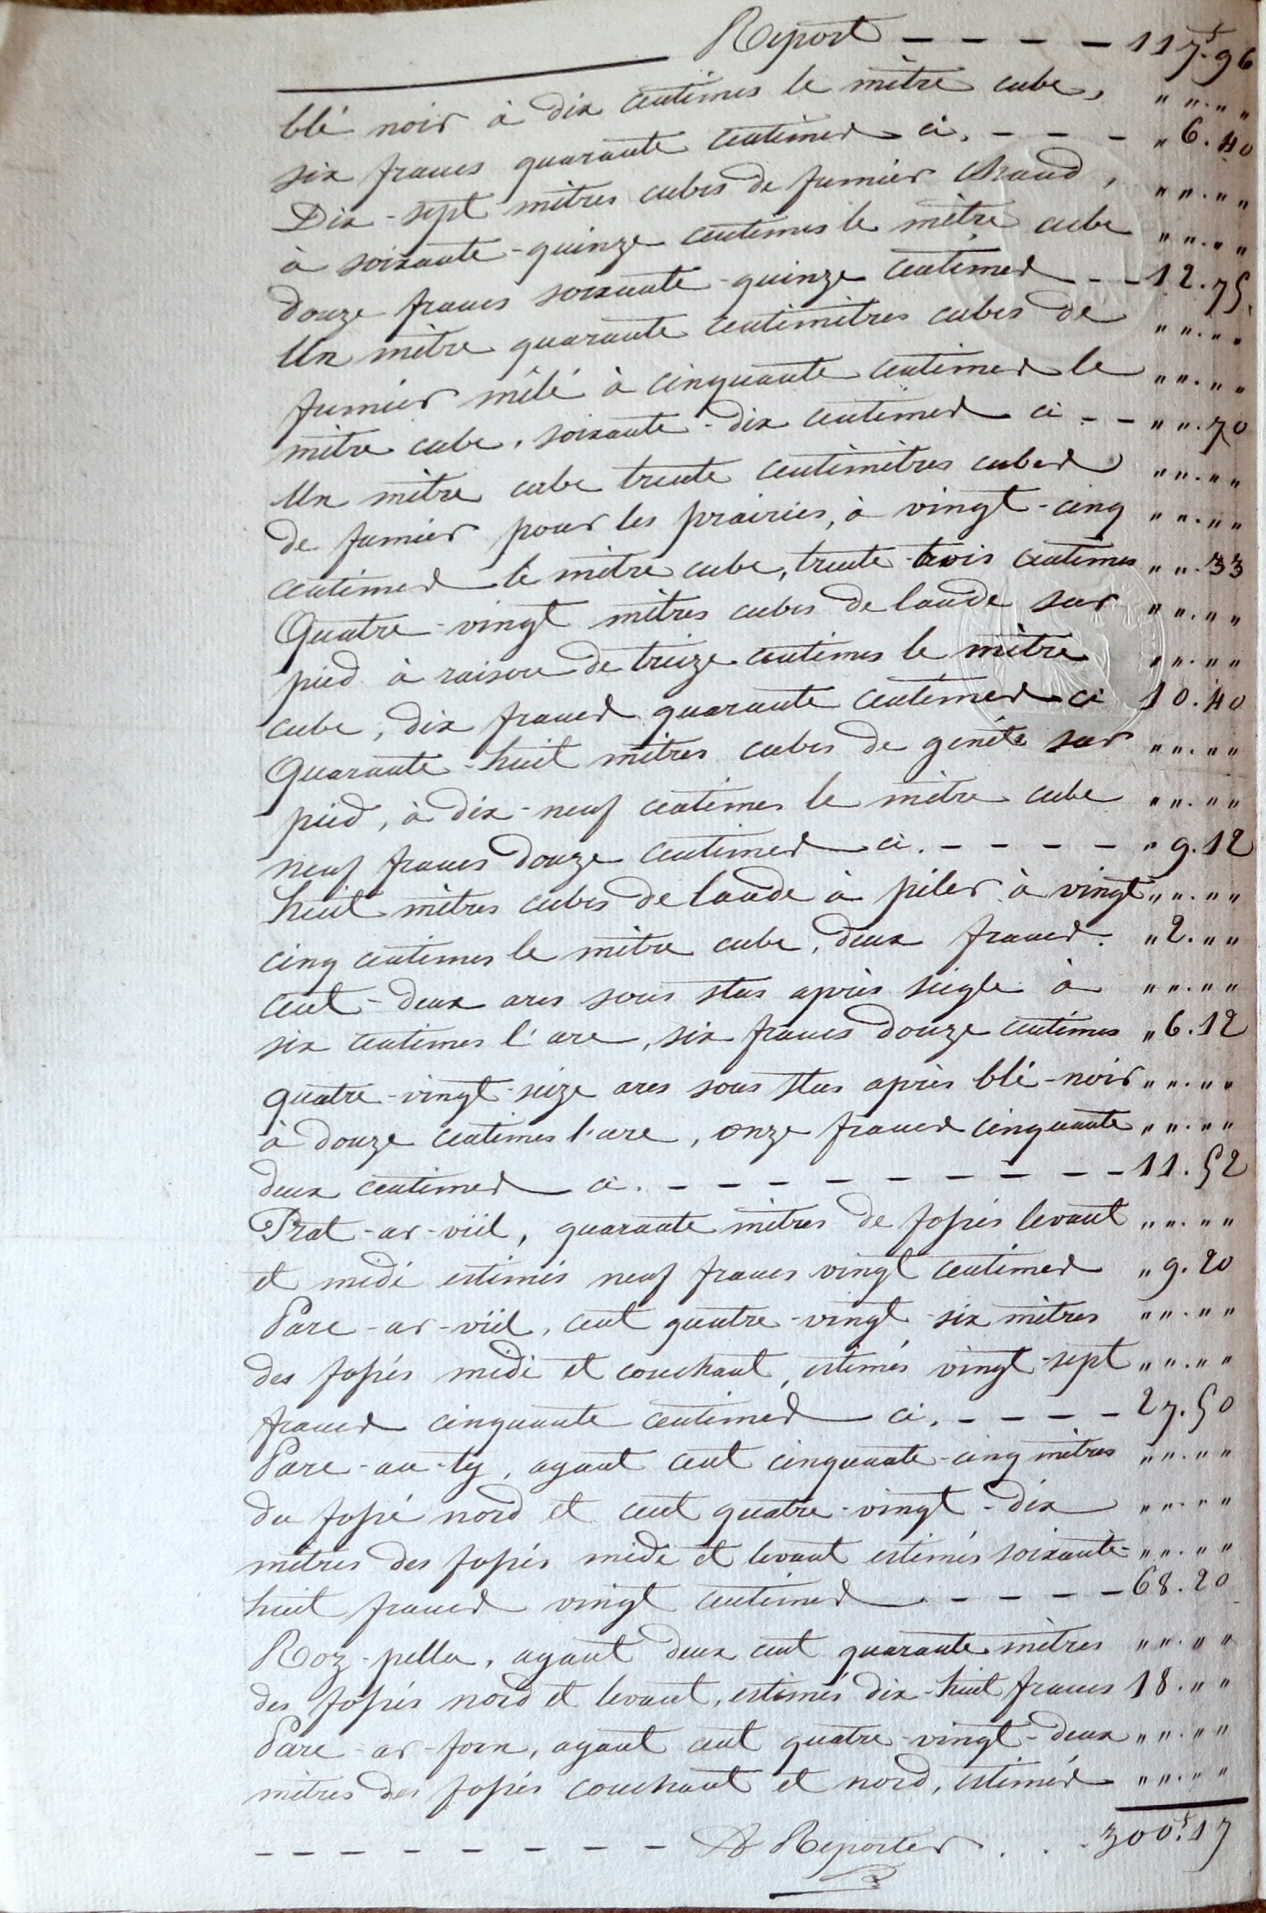 Report - - - - 117f.96
blé noir à dix centimes le mètre cube, " ". " "
six francs quarante centimes ci. - - - " 6.40
Dix-sept mètres cubes de fumier chaud, " ". " "
à soixante-quinze centimes le mètre cube " ". " "
douze francs soixante-quinze centimes - - 12.75.
Un mètre quarante centimètres cubes de " ". " "
fumier mêlé à cinquante centimes le " ". " "
mètre cube, soixante-dix centimes ci - - " ". 70
Un mètre cube trente centimètres cubes " ". " "
de fumier pour les prairies, à vingt-cinq " ". " "
centimes le mètre cube, trente-trois centimes " ". 33
Quatre-vingt mètres cubes de lande sur " ". " "
pied à raison de treize centimes le mètre " ". " "
cube, dix francs quarante centimes ci 10.40
Quarante-huit mètres cubes de genêt sur " ". " "
pied, à dix-neuf centimes le mètre cube " ". " "
neuf francs douze centimes ci. - - - - " 9.12
huit mètres cubes de lande à piler à vingt " ". " "
cinq centimes le mètre cube, deux francs. " 2. " "
cent-deux ares sous stus après seigle à " ". " "
six centimes l'are, six francs douze centimes " 6.12
quatre-vingt-seize ares sous stus après blé-noir " ". " "
à douze centimes l'are, onze francs cinquante " ". " "
deux centimes ci. - - - - - - - - - - 11.52
Prat-ar-viil, quarante mètres de fossés levant " ". " "
et midi estimés neuf francs vingt centimes " 9.20
Parc-ar-viil, cent quatre-vingt-six mètres " ". " "
des fossés midi et couchant, estimés vingt-sept " ". " "
francs cinquante centimes ci. - - - - 27.50
Parc-an-ty, ayant cent cinquante-cinq mètres " ". " "
du fossé nord et cent quatre-vingt-dix " ". " "
mètres des fossés midi et levant estimés soixante- " ". " "
huit francs vingt centimes - - - - - 68.20
Roz-pella, ayant deux cent quarante mètres " ". " "
des fossés nord et levant, estimés dix-huit francs 18. " "
Parc-ar-forn, ayant cent quatre-vingt-deux " ". " "
mètres des fossés couchant et nord, estimés " ". " "
- - - - - - - - - A Reporter . . . 300f.17